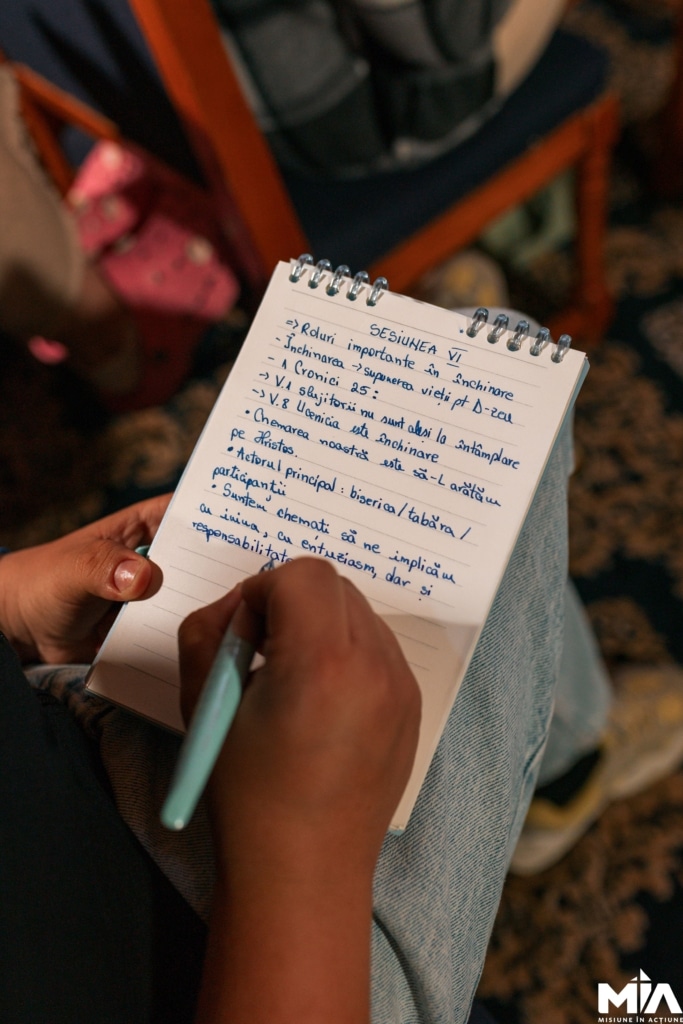 SESIUNEA VI
=> Roluri importante în închinare
- Închinarea -> supunerea vieții pt D-zeu
- 1 Cronici 25:
-> V.1 slujitorii nu sunt aleși la întâmplare
-> V.8 Ucenicia este închinare
• Chemarea noastră este să-L arătăm
pe Hristos.
• Actorul principal: biserica/tabăra/
participanții
• Suntem chemați să ne implicăm
cu inima, cu entuziasm, dar și
responsabilitate
MIA
MISIUNE ÎN ACȚIUNE